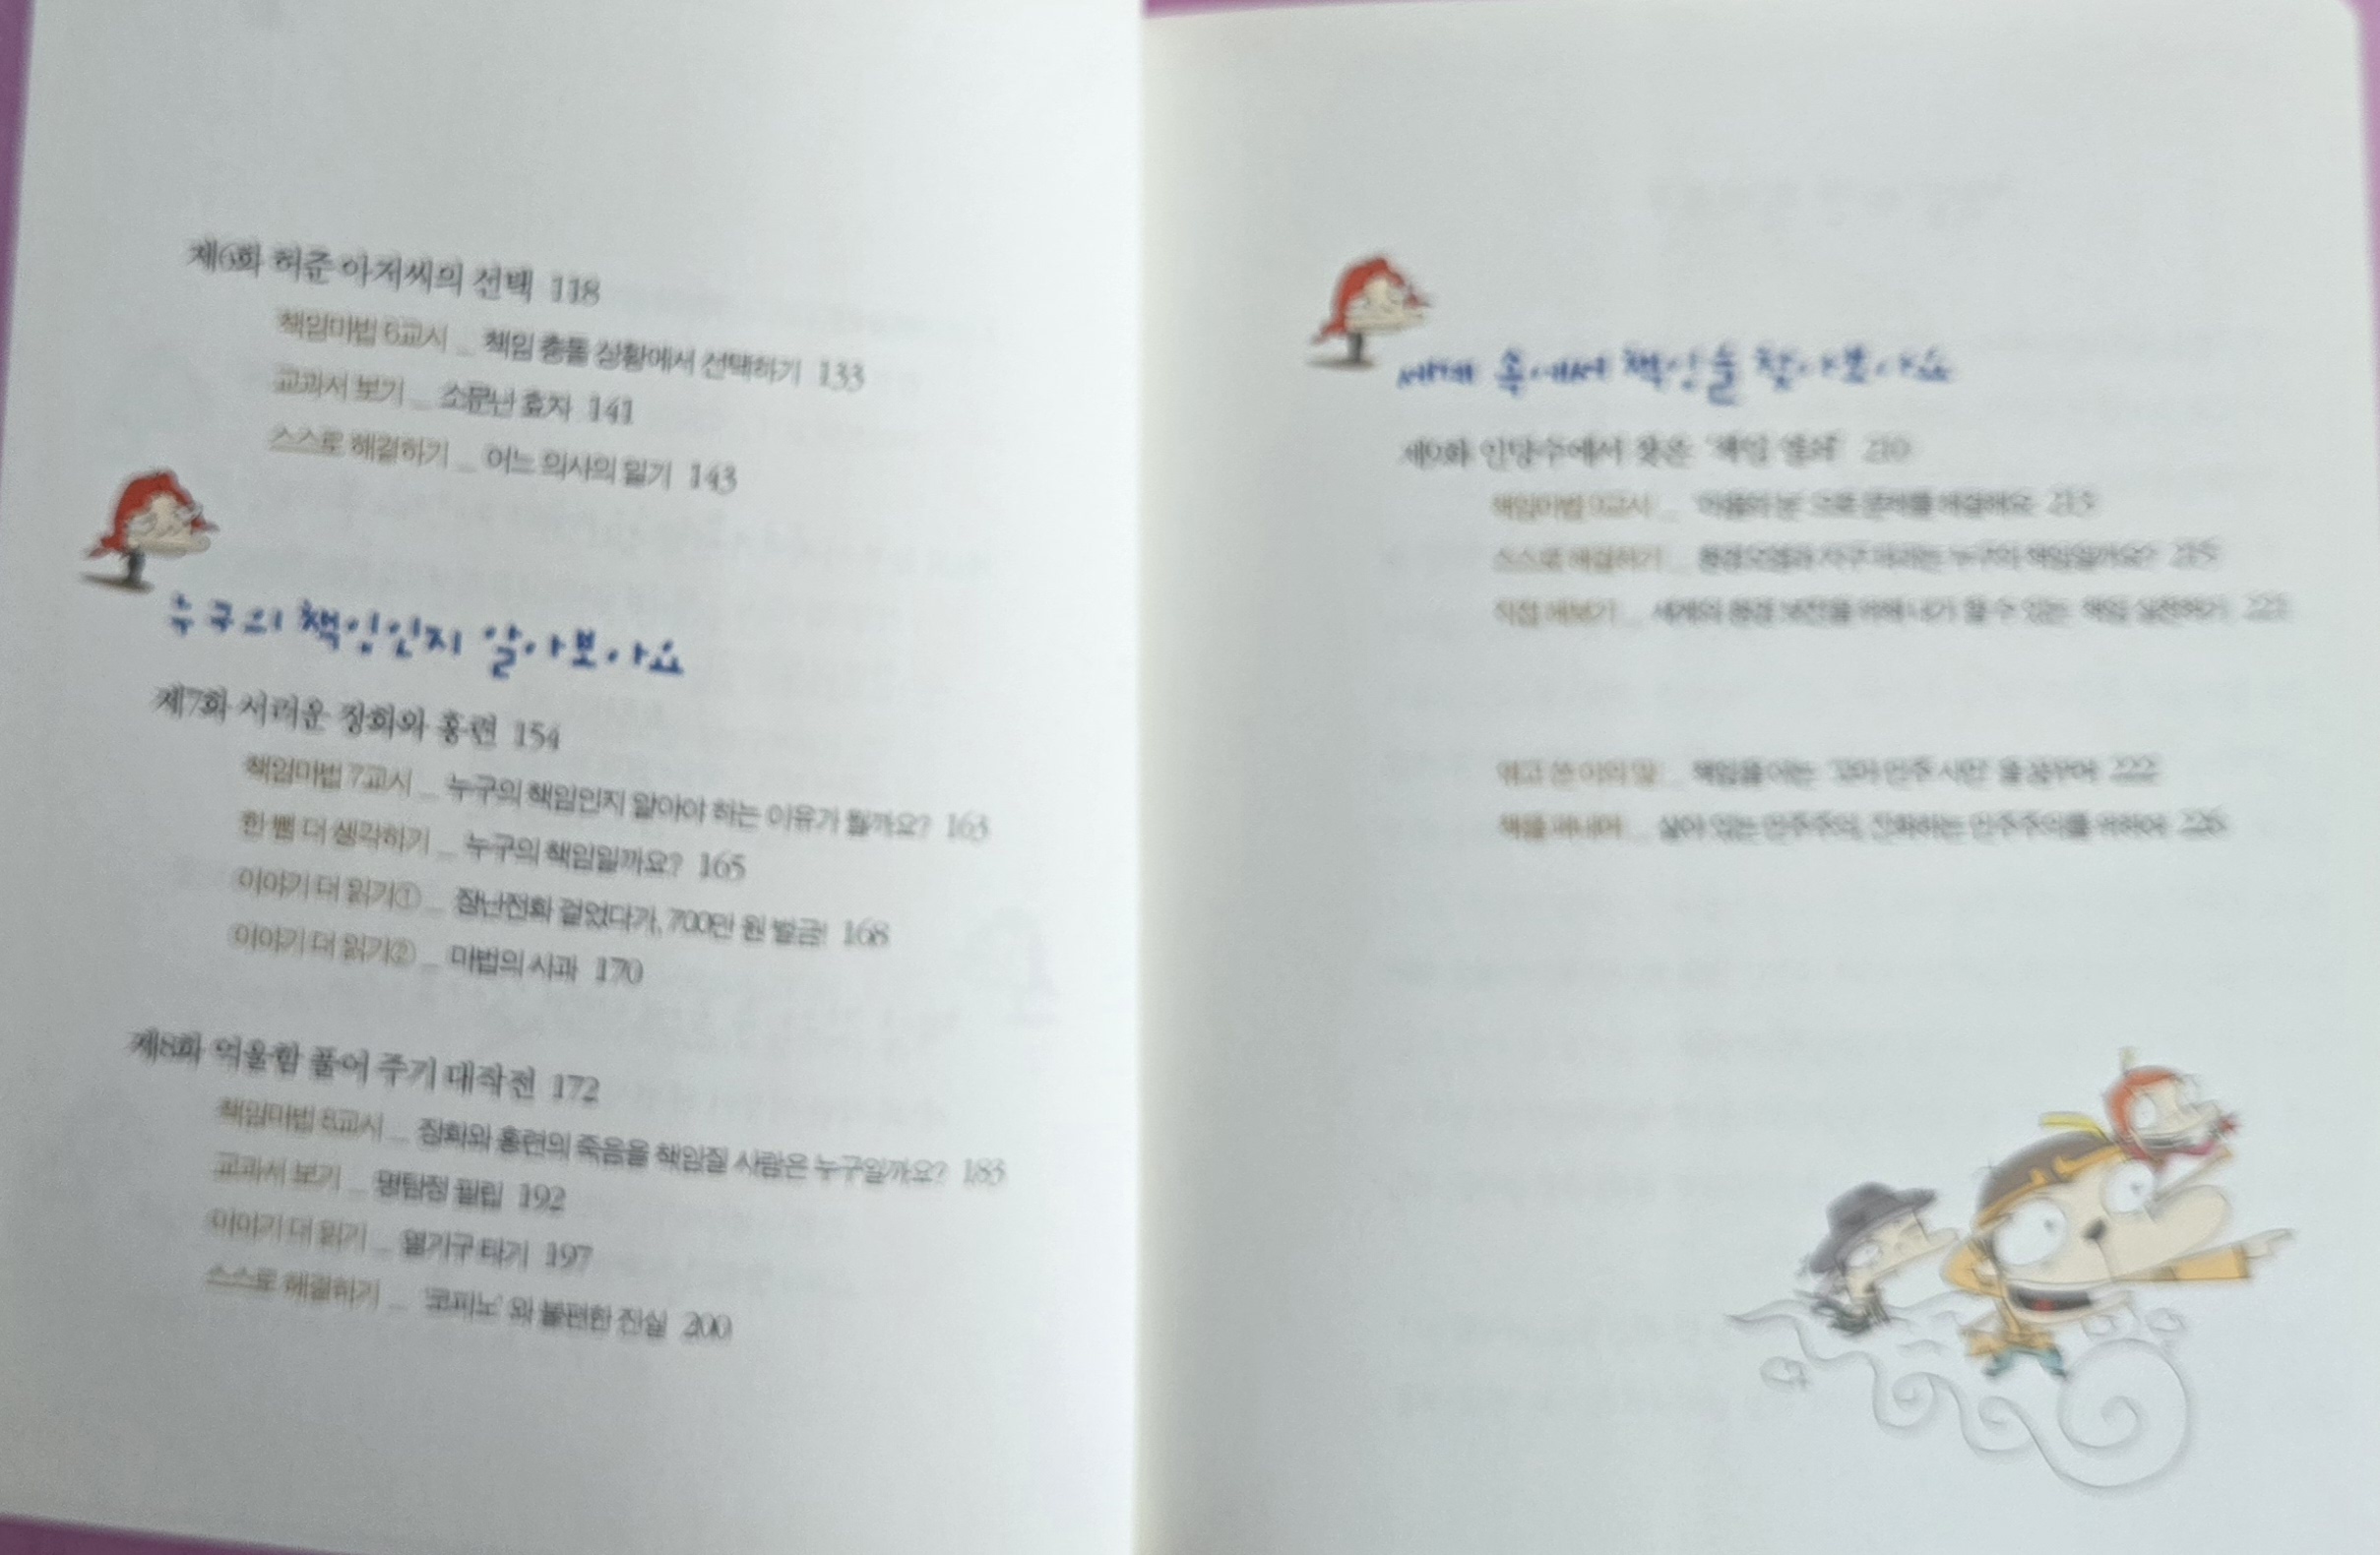 제6화 허준 아저씨의 선택 118
책임마법 6교시 _ 책임 충돌 상황에서 선택하기 133
교과서 보기 _ 소문난 효자 141
스스로 해결하기 _ 어느 의사의 일기 143
누구의 책임인지 알아보아요
제7화 서러운 장화와 홍련 154
책임마법 7교시 _ 누구의 책임인지 알아야 하는 이유가 뭘까요? 163
한 뼘 더 생각하기 _ 누구의 책임일까요? 165
이야기 더 읽기① _ 장난전화 걸었다가, 700만 원 벌금! 168
이야기 더 읽기② _ 마법의 사과 170
제8화 억울함 풀어 주기 대작전 172
책임마법 8교시 _ 장화와 홍련의 죽음을 책임질 사람은 누구일까요? 183
교과서 보기 _ 명탐정 필립 192
이야기 더 읽기 _ 열기구 타기 197
스스로 해결하기 _ '코피노'와 불편한 진실 200
세계 속에서 책임을 찾아보아요
제9화 인당수에서 찾은 '책임 열쇠' 210
책임마법 9교시 _ 으로 문제를 해결해요 213
스스로 해결하기 _ 환경오염과 지구 파괴는 누구의 책임일까요? 215
직접 해보기 _ 세계의 환경 보전을 위해 내가 할 수 있는 책임 실천하기 221
엮고 쓴 이의 말 _ 책임을 아는 민주 시민 을 꿈꾸며 222
책을 펴내며 _ 살아 있는 민주주의, 진화하는 민주주의를 위하여 226